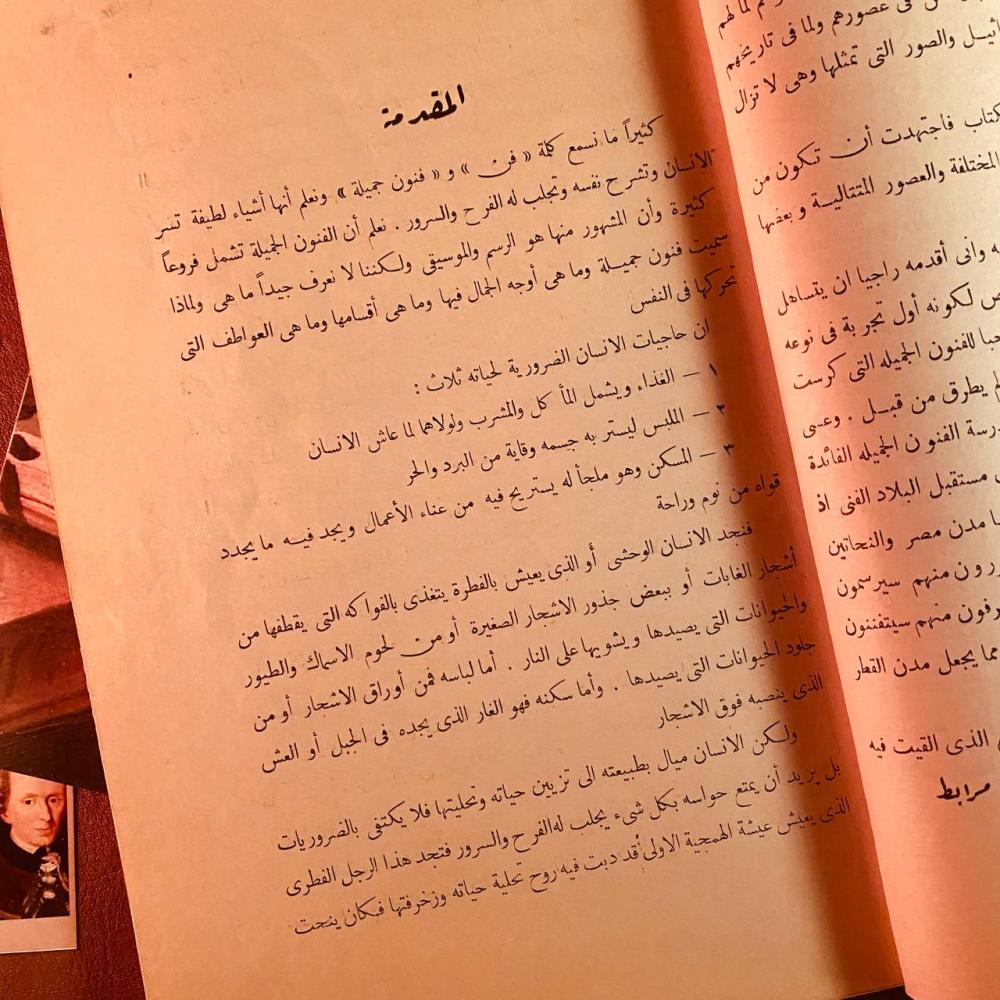 ثيل والصور التى تمثلها وهى لا تزال
كتاب فاجتهدت أن تكون من
المختلفة والعصور المتتالية وبعضها
وانى أقدمه راجيا ان يتساهل
لكونه أول تجربة فى نوعه
حبا للفنون الجميله التى كرست
يطرق من قبل . وعسى
الفنون الجميله الفائدة
مستقبل البلاد الفنى اذ
مدن مصر والنحاتين
منهم سيرسمون
منهم سيتفننون
مما يجعل مدن القطر
الذى القيت فيه
مرابط
المقدمة
كثيراً ما نسمع كلمة « فن » و « فنون جميلة » ونعلم أنها أشياء لطيفة تسر
الانسان وتشرح نفسه وتجلب له الفرح والسرور . نعلم أن الفنون الجميلة تشمل فروعاً
كثيرة وأن المشهور منها هو الرسم والموسيقى ولكننا لا نعرف جيداً ما هى ولماذا
سميت فنون جميلة وما هى أوجه الجمال فيها وما هى أقسامها وما هى العواطف التى
تحركها فى النفس
ان حاجيات الانسان الضرورية لحياته ثلاث :
١ – الغذاء ويشمل المأكل والمشرب ولولاهما لما عاش الانسان
٢ – الملبس ليستر به جسمه وقاية من البرد والحر
٣ – المسكن وهو ملجأ له يستريح فيه من عناء الأعمال ويجد فيه ما يجدد
قواه من نوم وراحة
فنجد الانسان الوحشى أو الذى يعيش بالفطرة يتغذى بالفواكه التى يقطفها من
أشجار الغابات أو ببعض جذور الاشجار الصغيرة أو من لحوم الاسماك والطيور
والحيوانات التى يصيدها ويشويها على النار . أما لباسه فمن أوراق الاشجار أو من
جلود الحيوانات التى يصيدها . وأما سكنه فهو الغار الذى يجده فى الجبل أو العش
الذى ينصبه فوق الاشجار
ولكن الانسان ميال بطبيعته الى تزيين حياته وتحليتها فلا يكتفى بالضروريات
بل يريد أن يمتع حواسه بكل شىء يجلب له الفرح والسرور فتجد هذا الرجل الفطرى
الذى يعيش عيشة الهمجية الاولى قد دبت فيه روح تحلية حياته وزخرفتها فكان ينحت